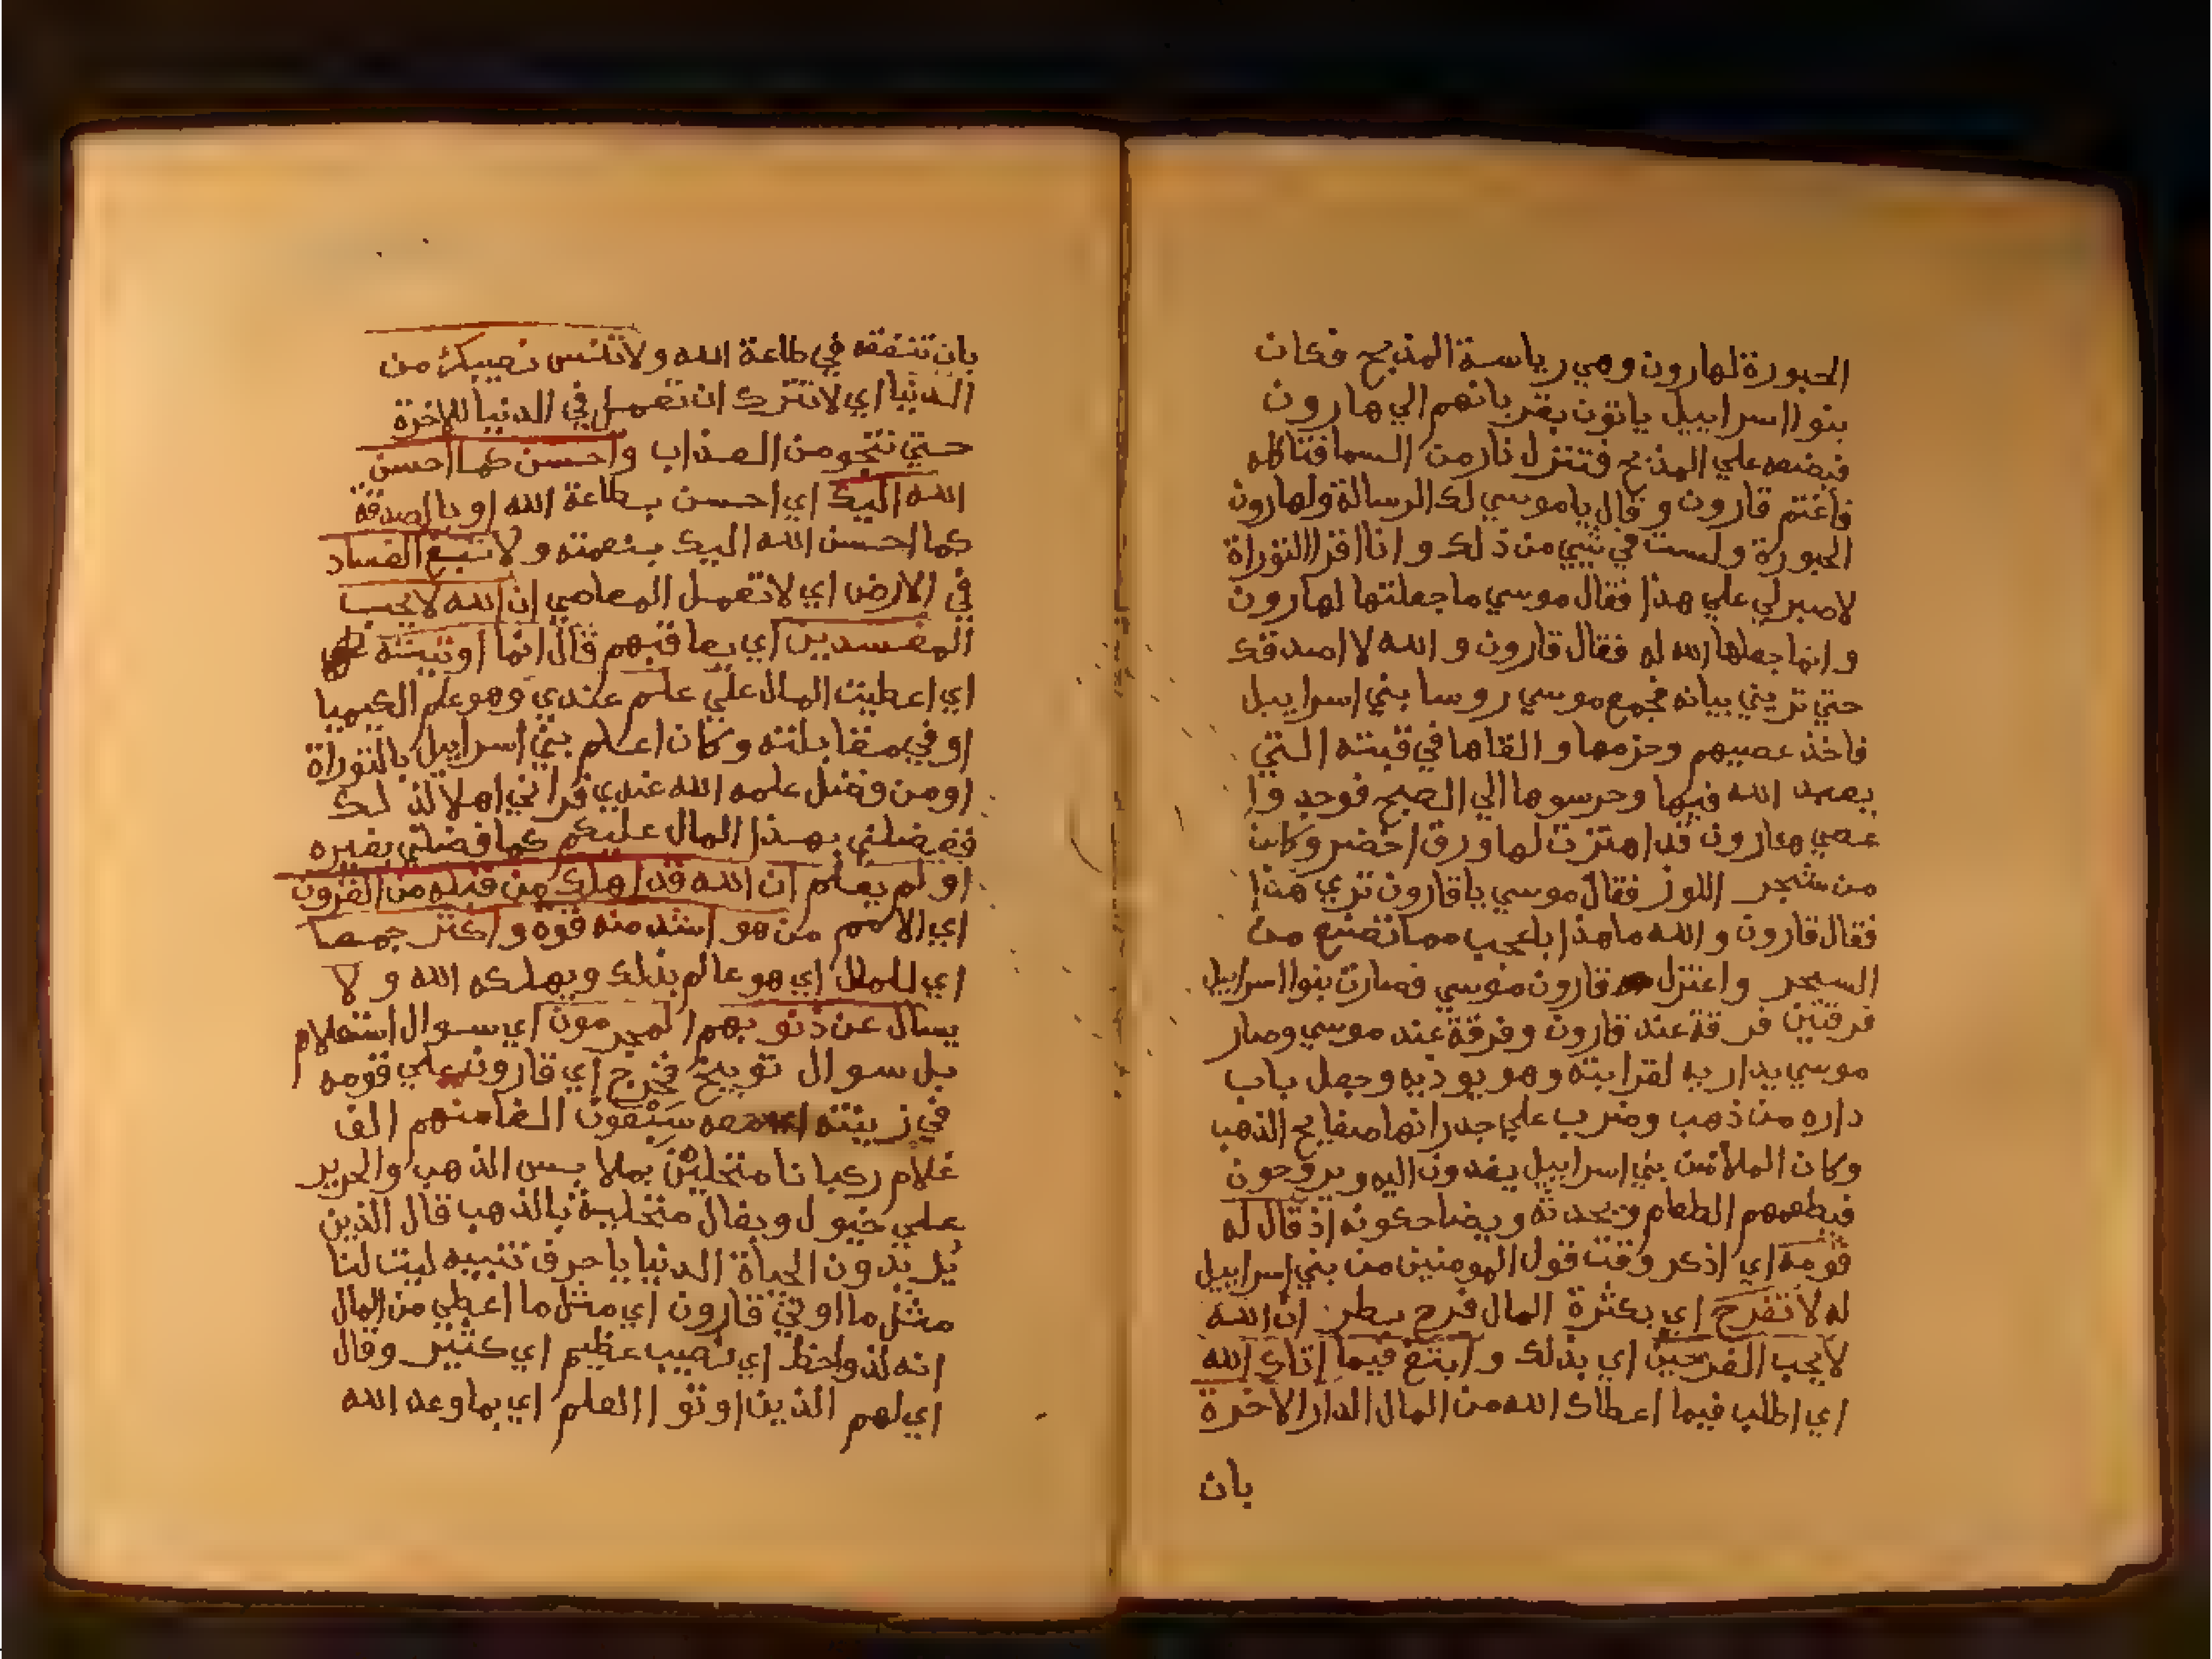 الحبورة لهارون وهي رياسة المذبح فكان
بنوا اسراييل ياتون بقربانهم الي هارون
فيضعه علي المذبح فتنزل نار من السما فتاكله
فاغتم قارون وقال يا موسي لك الرسالة ولهارون
الحبورة ولست في شيي من ذلك وانا اقرا التوراة
لا صبر لي علي هذا فقال موسي ما جعلتها لهارون
وانما جعلها الله له فقال قارون والله لا اصدقك
حتي تريني بيانه فجمع موسي روسا بني اسراييل
فاخذ عصيهم وحزمها والقاها في قبته التي
يعبد الله فيها وحرسوها الي الصبح فوجدوا
عصي هارون قد اهتزت لها ورق اخضر وكانت
من شجر اللوز فقال موسي يا قارون تري هذا
فقال قارون والله ما هذا باعجب مما تصنع من
السحر واعتزل قارون موسي فصارت بنوا اسراييل
فرقتين فرقة عند قارون وفرقة عند موسي وصار
موسي يداريه لقرابته وهو يوذيه وجعل باب
داره من ذهب وضرب علي جدرانها صفايح الذهب
وكان الملأ من بني اسراييل يغدون اليه ويروحون
فيطعمهم الطعام ويحدثه ويضاحكونه اذ قال له
قومه اي اذكر وقت قول المومنين من بني اسراييل
له لا تفرح اي بكثرة المال فرح بطر ان الله
لا يحب الفرحين اي بذلك وابتغ فيما اتاك الله
اي اطلب فيما اعطاك الله من المال الدار الاخرة
بان
بان تنفقه في طاعة الله ولا تنس نصيبك من
الدنيا اي لا تترك ان تعمل في الدنيا للاخرة
حتي تنجو من العذاب واحسن كما احسن
الله اليك اي احسن بطاعة الله او بالصدقة
كما احسن الله اليك بنعمته ولا تبغ الفساد
في الارض اي لا تعمل المعاصي ان الله لا يحب
المفسدين اي يعاقبهم قال انما اوتيته
اي اعطيت المال علي علم عندي وهو علم الكيميا
او في مقابلته وكان اعلم بني اسراييل بالتوراة
او من فضل علمه الله عندي فراني اهلا لذلك
ففضلني بهذا المال عليكم كما فضلني بغيره
او لم يعلم ان الله قد اهلك من قبله من القرون
اي الامم من هو اشد منه قوة واكثر جمعا
اي للمال اي هو عالم بذلك ويهلكه الله ولا
يسال عن ذنوبهم المجرمون اي سوال استعلام
بل سوال توبيخ فخرج اي قارون علي قومه
في زينته معه سبعون الفا منهم الف
غلام ركبانا متحليين بملابس الذهب والحرير
علي خيول وبغال متحلية بالذهب قال الذين
يريدون الحياة الدنيا يا حرف تنبيه ليت لنا
مثل ما اوتي قارون اي مثل ما اعطي من المال
انه لذوا حظ اي نصيب عظيم اي كثير وقال
اي لهم الذين اوتوا العلم اي بما وعد الله